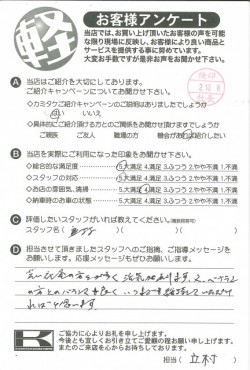 軽
お客様アンケート
当店では、お買い上げ頂いたお客様の声を可能
な限り現場に反映し、お客様により良い商品と
サービスを提供する事に努めています。
大変お手数ですが是非お声をお聞かせ下さい。
A 当店はご紹介を大切にしております。
ご紹介キャンペーンについてお聞かせ下さい。
◇カミタケご紹介キャンペーンの説明はありましたでしょうか
はい いいえ
◇具体的にご紹介頂ける方とのご関係をお聞き頂けますでしょうか
ご親戚 ご友人 職場の方 機会があれば紹介したい
B 当店を実際にご利用になった印象をお聞かせ下さい。
◇総合的な満足度 5.大満足 4.満足 3.ふつう 2.やや不満 1.不満
◇スタッフの対応 5.大満足 4.満足 3.ふつう 2.やや不満 1.不満
◇お店の雰囲気、清掃 5.大満足 4.満足 3.ふつう 2.やや不満 1.不満
◇納車時のお車の状態 5.大満足 4.満足 3.ふつう 2.やや不満 1.不満
C 評価したいスタッフがいれば教えてください。(複数回答可)
スタッフ名( )
D 担当させて頂きましたスタッフへのご指摘、ご指導メッセージを
お願いします。応援メッセージもぜひお願いします。
若い社員の方々が多く活気があります。又、ベテラン
の方とのバランスも良く
ご協力に心よりお礼を申し上げます。
今後とも宜しくお引き立てご愛顧の程お願い申し上げます。
またのご来店を心からお待ちしております。
担当( 立村 )